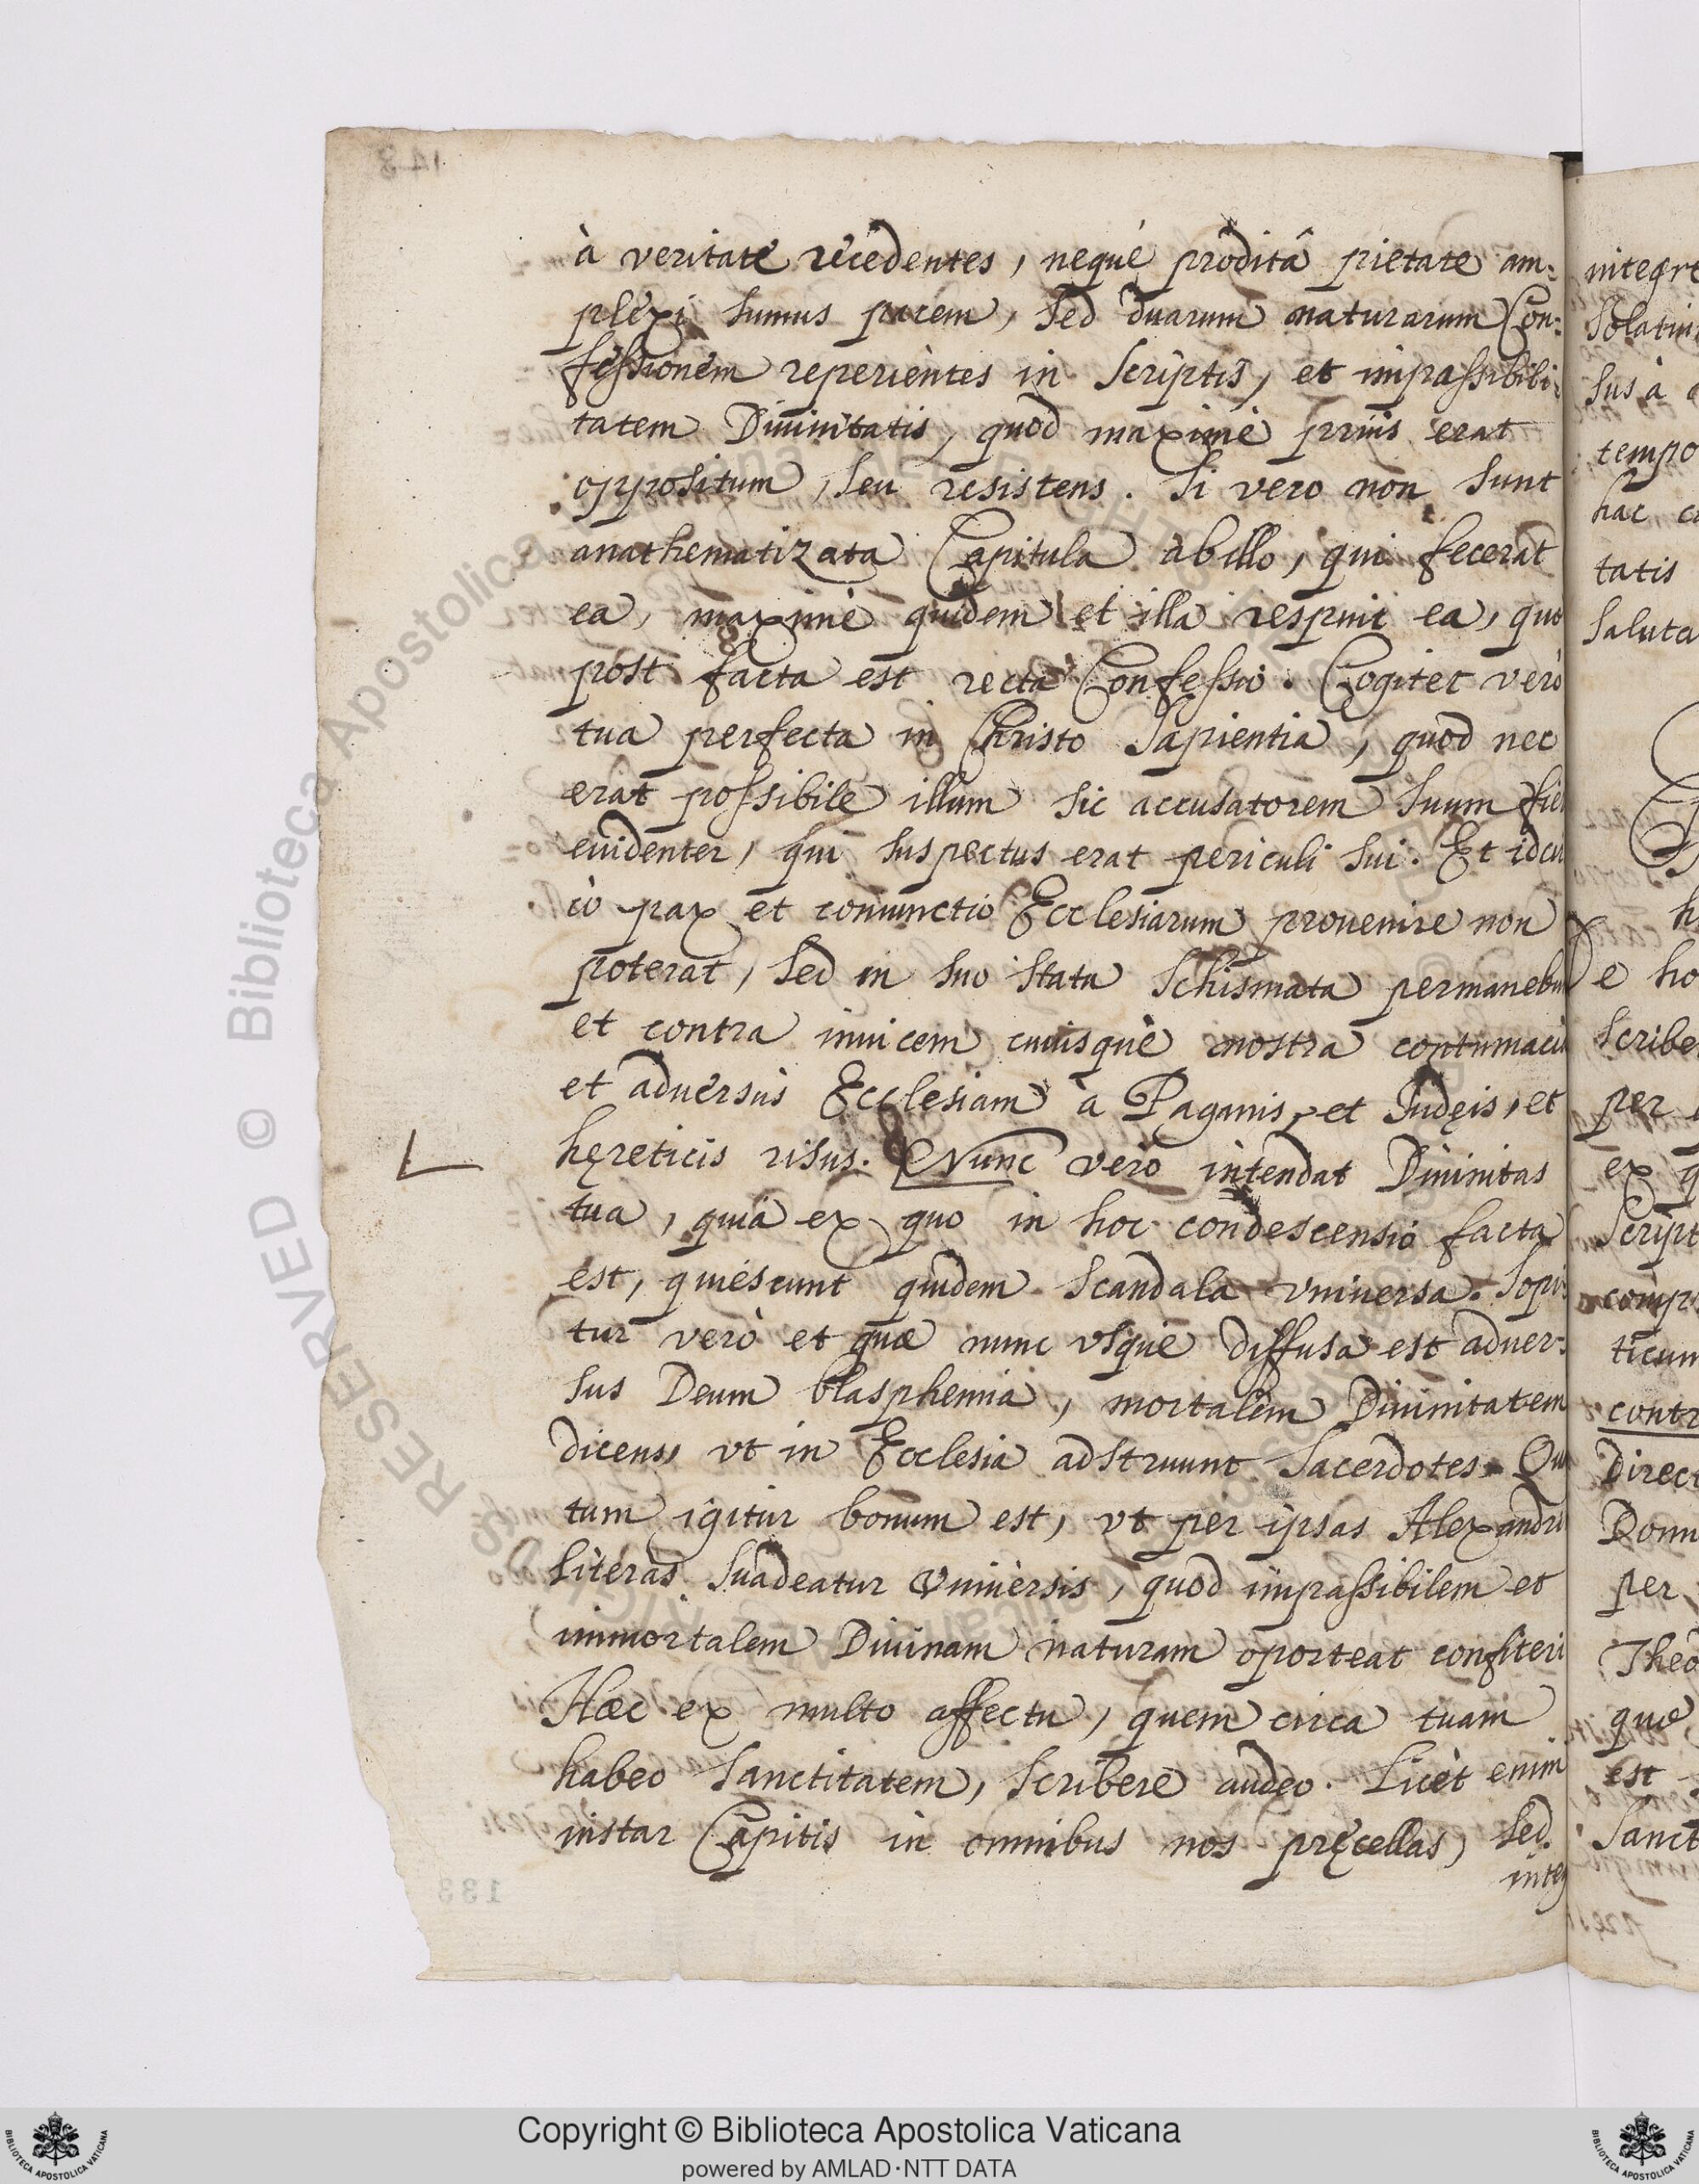 à veritate recedentes, neque prodità pietate am:
plexi sumus pacem, sed duarum naturarum Con:
fessionem reperientes in Scriptis, et impassibili:
tatem Diuinitatis, quod maxime prius erat
oppositum, seu resistens. Si vero non sunt
anathematizata Capitula ab illo, qui fecerat
ea, maxime quidem et illa respuit ea, quæ
post facta est recta Confessio. Cogitet verò
tua perfecta in Christo Sapientia, quod nec
erat possibile illum sic accusatorem suum fie
euidenter, qui suspectus erat periculi sui. Et idcir
cò pax et coniunctio Ecclesiarum prouenire non
poterat, sed in suo statu Schismata permanebu
et contra inuicem cuiusque nostra contumaci
et aduersus Ecclesiam à Paganis, et Judęis, et
hęreticis risus. Nunc vero intendat Diuinitas
tua, quia ex quo in hoc condescensio facta
est, quiescunt quidem scandala vniuersa. Sopi:
tur verò et quæ nunc vsque diffusa est aduer:
sus Deum blasphemia, mortalem Diuinitatem
dicens, vt in Ecclesia adstruunt Sacerdotes. Qua
tum igitur bonum est, vt per ipsas Alexandri
literas suadeatur vniuersis, quod impassibilem et
immortalem Diuinam naturam oporteat confiteri
Hæc ex multo affectu, quem circa tuam
habeo Sanctitatem, scribere audeo. Licèt enim
instar Capitis in omnibus nos pręcellas, sed
integ
integre
tempo
hac
tatis
saluta
e ho
scribe
per
ex q
Script
comp
ticum
contr
Direct
Domn
per
Theo
quæ
est
Sanct
© Biblioteca Apostolica Vaticana
RIGHTS RESERVED
Copyright © Biblioteca Apostolica Vaticana
powered by AMLAD·NTT DATA
BIBLIOTECA APOSTOLICA VATICANA
BIBLIOTECA APOSTOLICA VATICANA